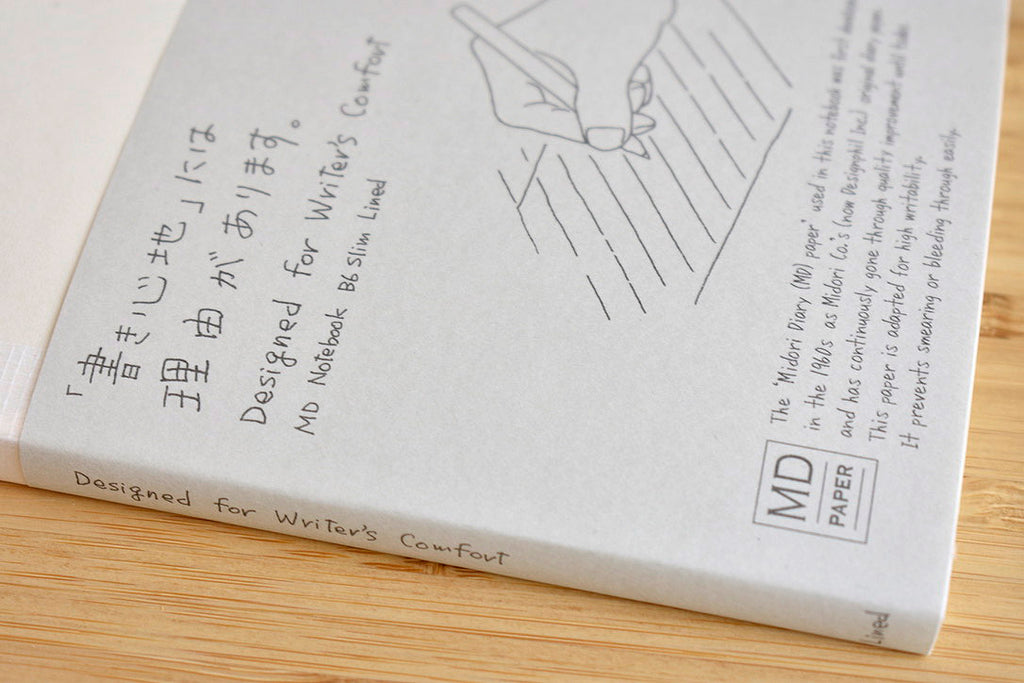 「書き心地」には
理由があります。
Designed for Writer's Comfort
MD Notebook B6 Slim Lined
The 'Midori Diary (MD) paper' used in this notebook was first
in the 1960s as Midori Co.'s (now Designphil Inc.) original diary paper
and has continuously gone through quality improvement until today.
This paper is adapted for high writability.
It prevents smearing or bleeding through easily.
MD
PAPER
Designed for Writer's Comfort
Lined